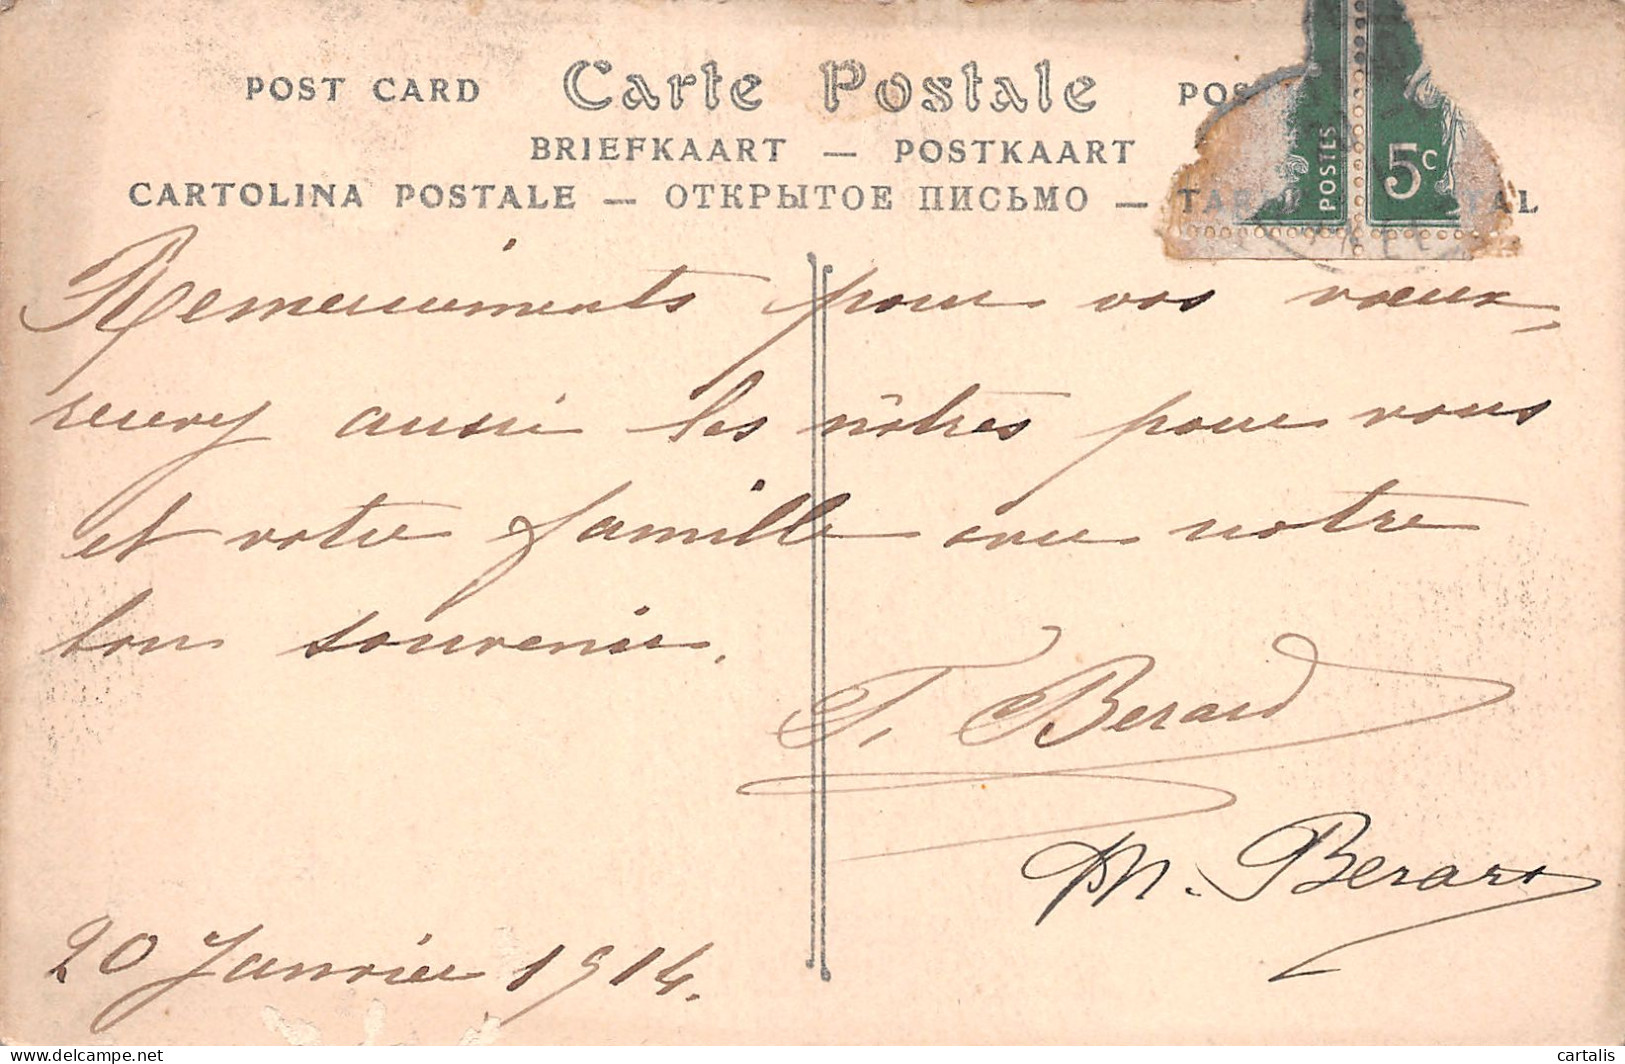 POST CARD Carte Postale POS
BRIEFKAART — POSTKAART
CARTOLINA POSTALE — ОТКРЫТОЕ ПИСЬМО — TAR TAL
POSTES
5c
Remerciements pour vos vœux,
recevez aussi les nôtres pour vous
et votre famille avec notre
bon souvenir.
F. Berard
M. Berard
20 Janvier 1914.
delcampe.net
cartalis